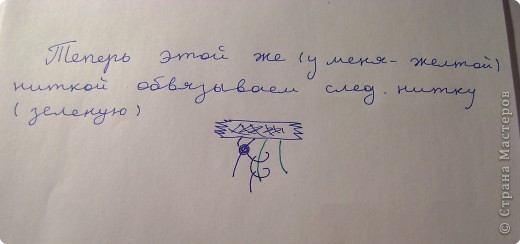 Теперь этой же (у меня - желтой)
ниткой обвязываем след. нитку
(зеленую)
© Страна Мастеров